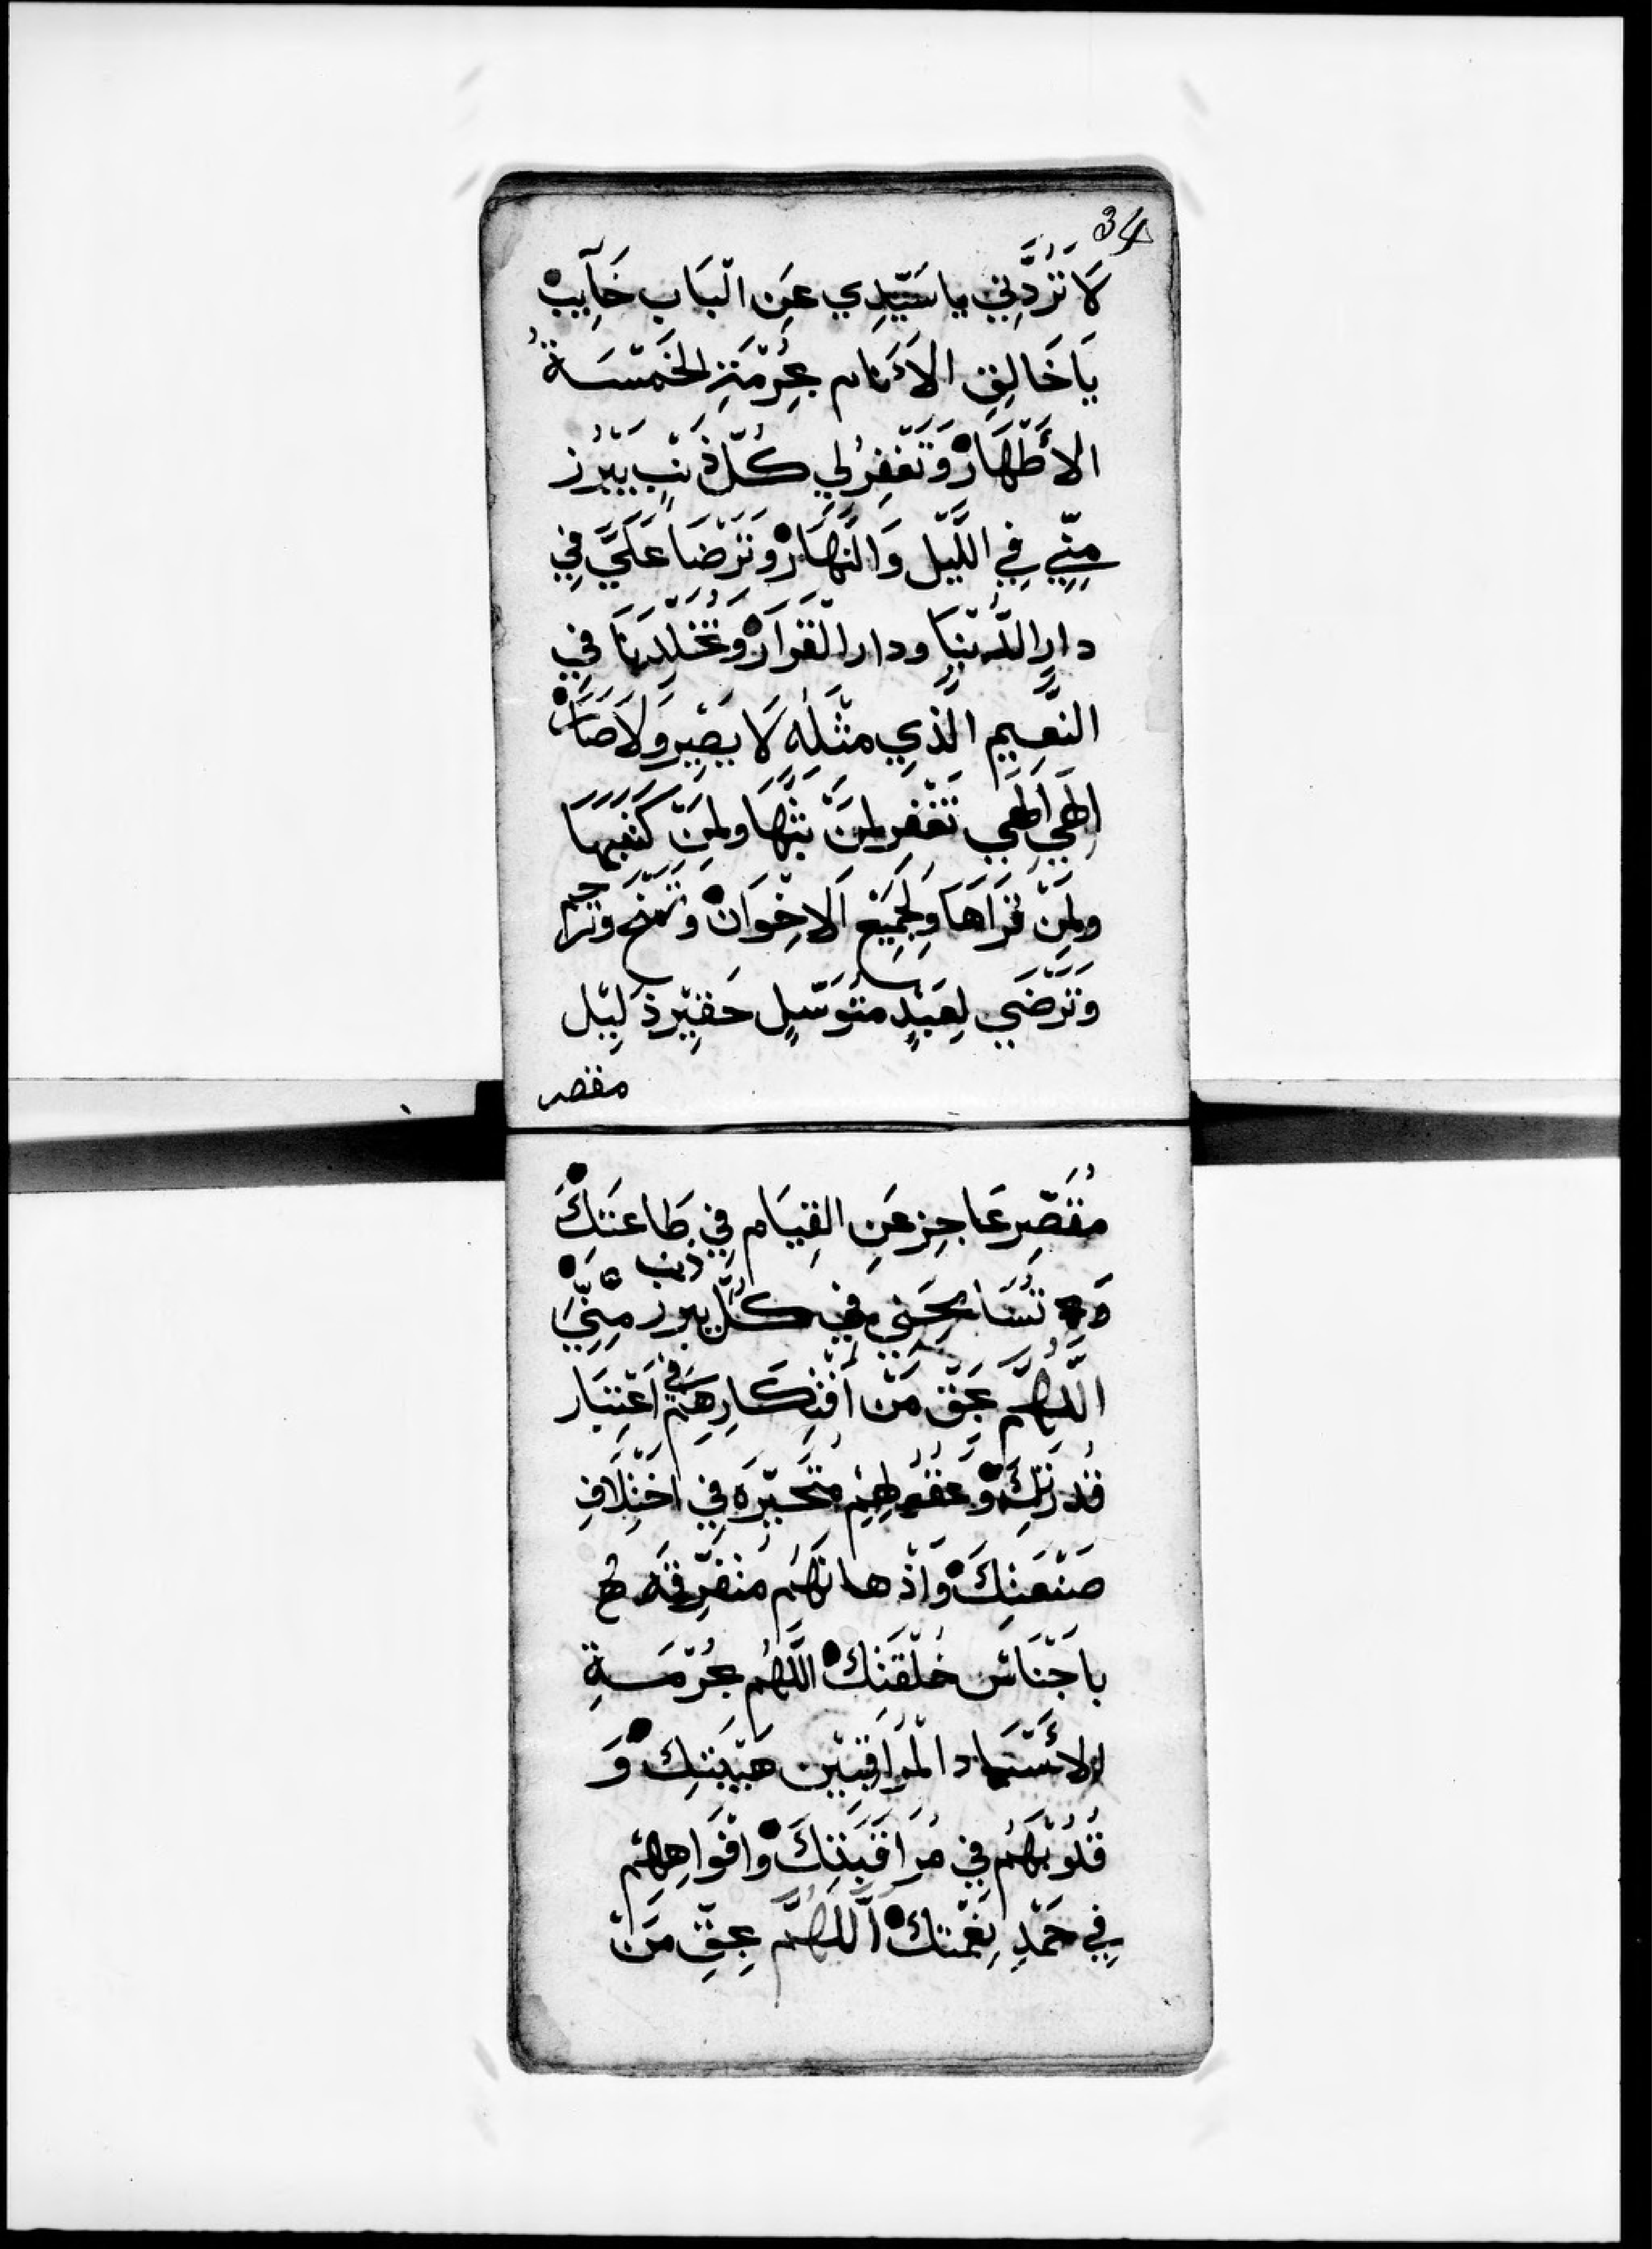 34
لَا تَرُدَّنِي يا سَيّدِي عَنِ الْبَابِ خَآيِبْ
يَا خَالِقِ الاَءَنام بحِرْمَةِ الخَمْسَةُ
الأَطْهَارْ وَتَغْفِرُ لِي كُلّ ذَنْبٍ يَبْرُز
مِنِّي فِي اللَّيْل وَالنَّهَارْ وَتَرْضَا عَلَيَّ فِي
دارِ الدُّنْيَا ودار الْقَرَارْ وَتُخَلِّدنَا فِي
النَّعِيم الَّذِي مثْلُهُ لَا يَصِيْر وَلَا صَارْ
الهَي الهَي تَغْفر لمَنْ نَبَّهَا ولمَنْ كَتَبهَا
ولمَنْ قَرَاهَا وَلِجَمِيْعِ الاخِوَانْ وتمْنَح وَتَرْحم
وَتَرْضَى لِعَبْدٍ متَوَسّلٍ حَقِيْر ذَلِيْل
مقصر
مُقَصِّر عَاجِز عَنِ القِيَام فِي طَاعَتكَْ
وَ تُسَامِحَنِي فِي كُلّ ذنب يبرز مِنِّيَ
اللَّهُمَّ بحَقّ مَنْ أفْتِكَارِهِمْ فِي اَعْتِبَار
قُدرَتِكَْ وَعُقُولِهِمْ مُتَحَيّرَه فِي اخْتِلَافِ
صَنْعَتِكَْ وَاَذْهانَهُم مُتفَرِّقَه
باجْنَاسْ خلْقَتِكْ اللَّهُم بحُرْمَةِ
الأَسْيَاد الْمُرَاقِبيْن هَيْبَتِكْ وَ
قُلُوْبَهُم فِي مُرَاقَبَتِكَْ وافْوَاهِهِم
فِي حَمْدِ نِعْمتكْ اَللهُمَّ بحِقِّ مَنْ